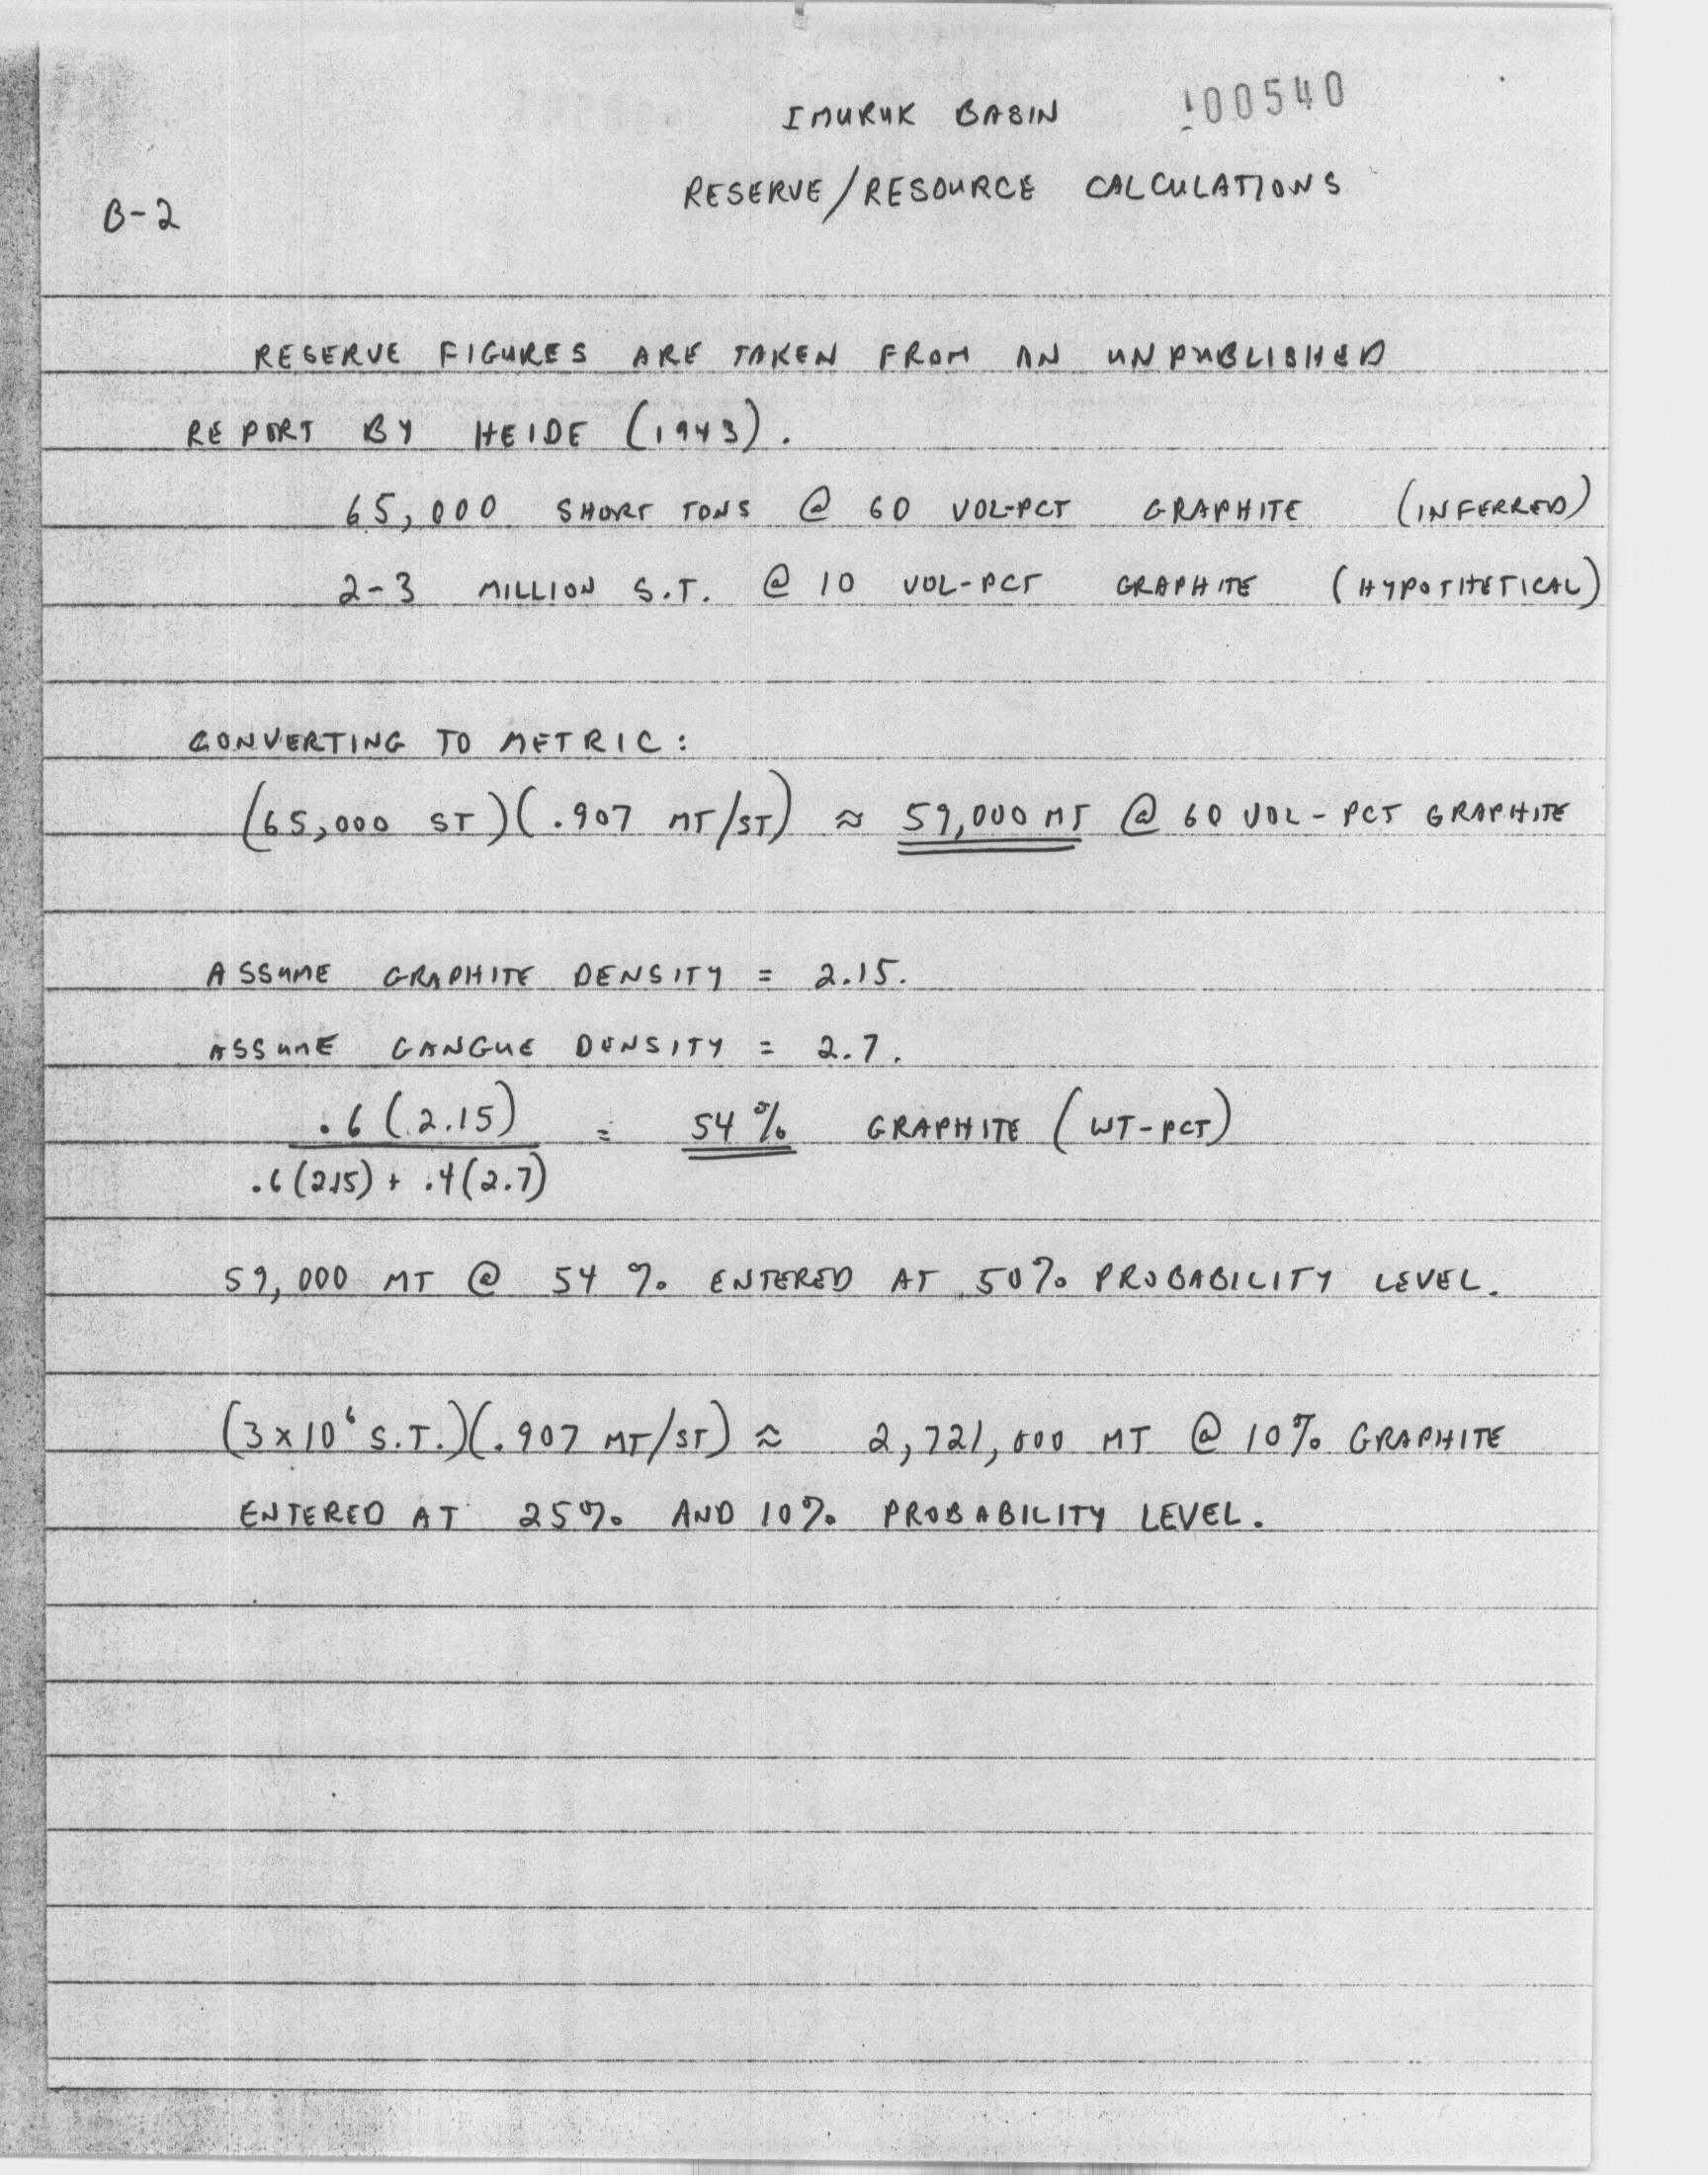 IMURUK BASIN 100540
RESERVE/RESOURCE CALCULATIONS
B-2
RESERVE FIGURES ARE TAKEN FROM AN UNPUBLISHED
REPORT BY HEIDE (1943).
65,000 SHORT TONS @ 60 VOL-PCT GRAPHITE (INFERRED)
2-3 MILLION S.T. @ 10 VOL-PCT GRAPHITE (HYPOTHETICAL)
CONVERTING TO METRIC:
(65,000 ST)(.907 MT/ST) ≈ 59,000 MT @ 60 VOL-PCT GRAPHITE
ASSUME GRAPHITE DENSITY = 2.15.
ASSUME GANGUE DENSITY = 2.7.
.6(2.15) = 54% GRAPHITE (WT-PCT)
.6(2.15) + .4(2.7)
59,000 MT @ 54% ENTERED AT 50% PROBABILITY LEVEL.
(3x10⁶ S.T.)(.907 MT/ST) ≈ 2,721,000 MT @ 10% GRAPHITE
ENTERED AT 25% AND 10% PROBABILITY LEVEL.